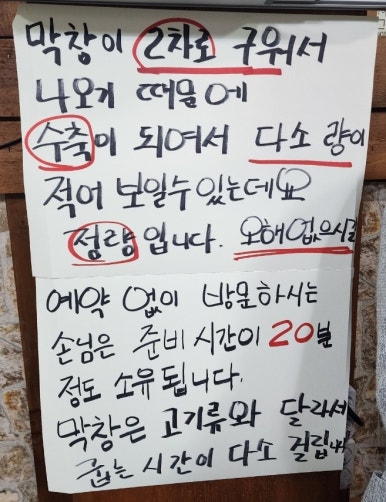 막창이 2차로 구워서
나오기 때문에
수축이 되여서 다소 량이
적어 보일수 있는데요
정량입니다. 오해없으시길
예약 없이 방문하시는
손님은 준비 시간이 20분
정도 소유됩니다.
막창은 고기류와 달라서
굽는 시간이 다소 걸립니다